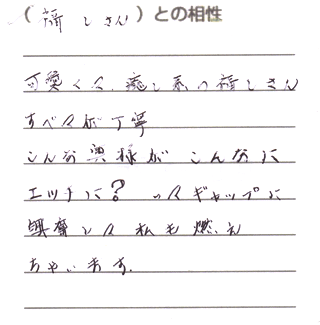 (　　しさん)との相性
可愛くて、癒し系の　　しさん
すべてが丁寧
こんな奥様がこんなに
エッチに？ってギャップに
興奮して私も燃え
ちゃいます。